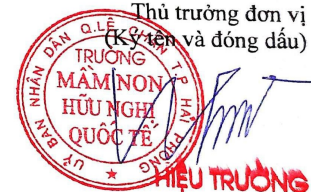 Thủ trưởng đơn vị
(Ký tên và đóng dấu)
ỦY BAN NHÂN DÂN Q.LÊ CHÂN T.P HẢI PHÒNG
TRƯỜNG
MẦM NON
HỮU NGHỊ
QUỐC TẾ
HIỆU TRƯỞNG